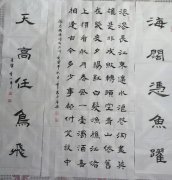 海闊憑魚躍
滾滾長江東逝水浪花淘盡英
雄是非成敗轉頭空青山依舊
在幾度夕陽紅白髮漁樵江渚
上慣看秋月春風一壺濁酒喜
相逢古今多少事都付笑談中
天高任鳥飛